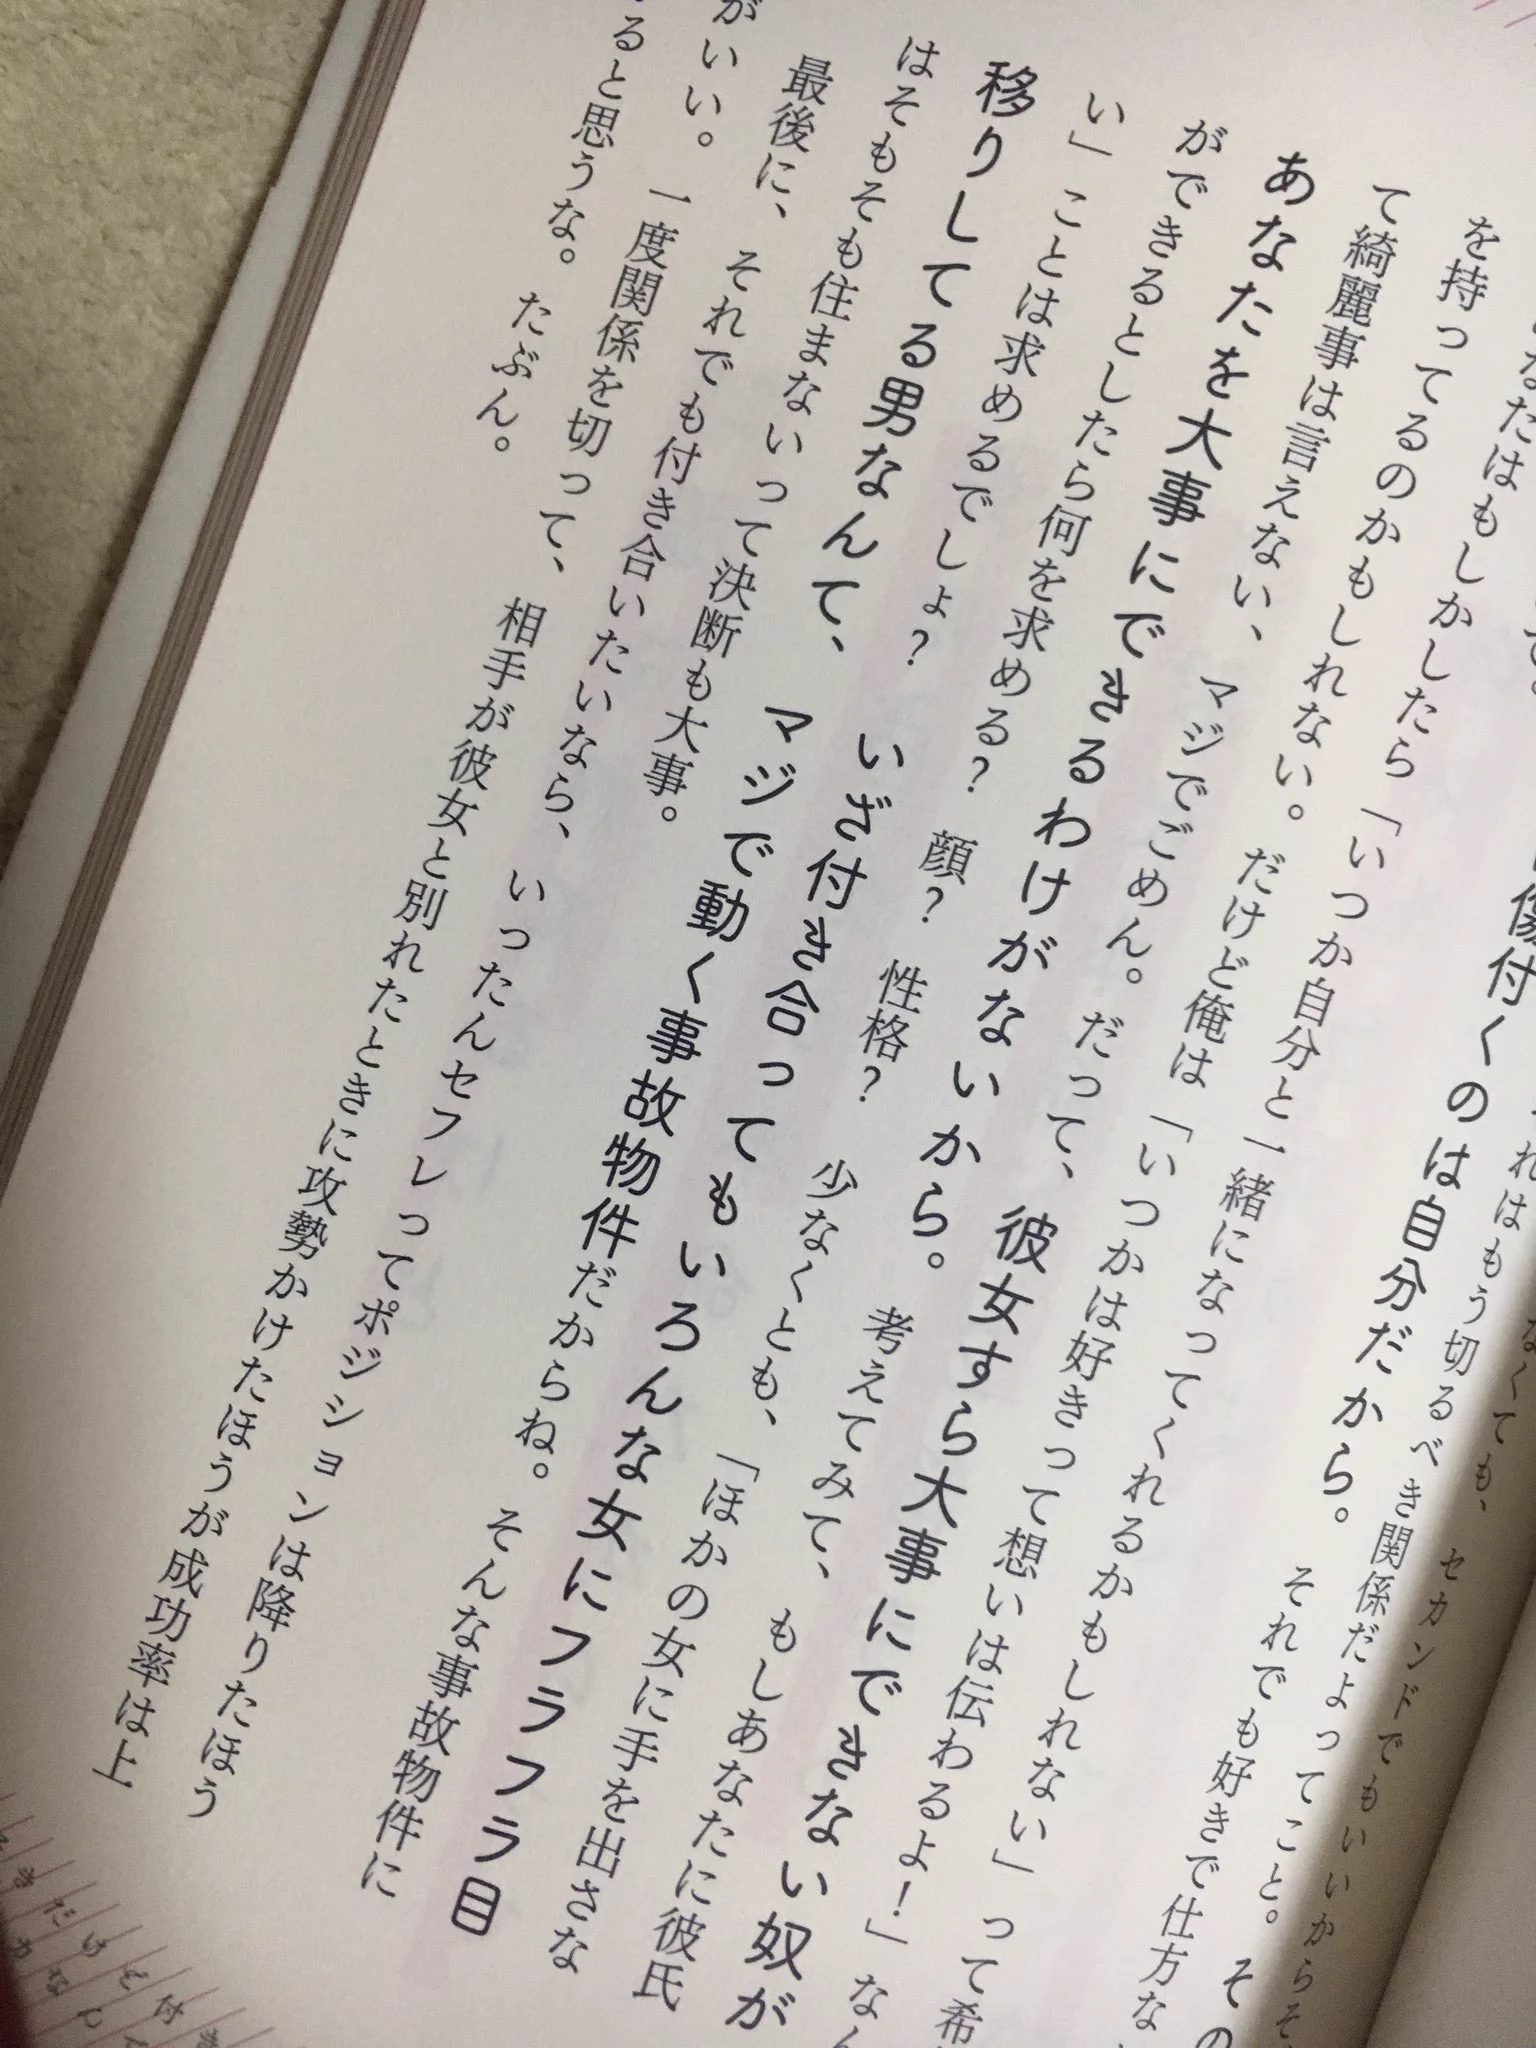 なたはもしかしたら「いつか自分と一緒になってくれるかもしれない」って希
を持ってるのかもしれない。だけど俺は「いつかは好きって想いは伝わるよ！」なん
て綺麗事は言えない、マジでごめん。だって、彼女すら大事にできない奴が
あなたを大事にできるわけがないから。考えてみて、もしあなたに彼氏
ができるとしたら何を求める？　顔？　性格？　少なくとも、「ほかの女に手を出さな
い」ことは求めるでしょ？　いざ付き合ってもいろんな女にフラフラ目
移りしてる男なんて、マジで動く事故物件だからね。そんな事故物件に
はそもそも住まないって決断も大事。
最後に、それでも付き合いたいなら、いったんセフレってポジションは降りたほう
がいい。一度関係を切って、相手が彼女と別れたときに攻勢かけたほうが成功率は上
ると思うな。たぶん。